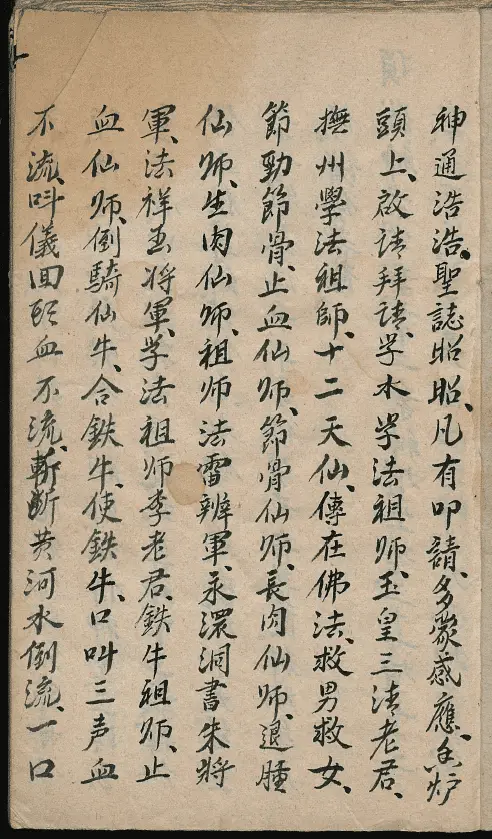 神通浩浩、聖誌昭昭、凡有叩請、多蒙感應、香炉
頭上、啟请拜请、学水学法祖师、玉皇三清老君、
撫州學法祖師、十二天仙、傳在佛法、救男救女、
節勁節骨、止血仙师、節骨仙师、長肉仙师、退腫
仙师、生肉仙师、祖师法雷辦軍、永還洞書朱將
軍、法祥玉将軍、学法祖师李老君、鉄牛祖师、止
血仙师、倒騎仙牛、合鉄牛、使鉄牛、口叫三声血
不流、叫儀回頭血不流、斬断黄河水倒流、一口